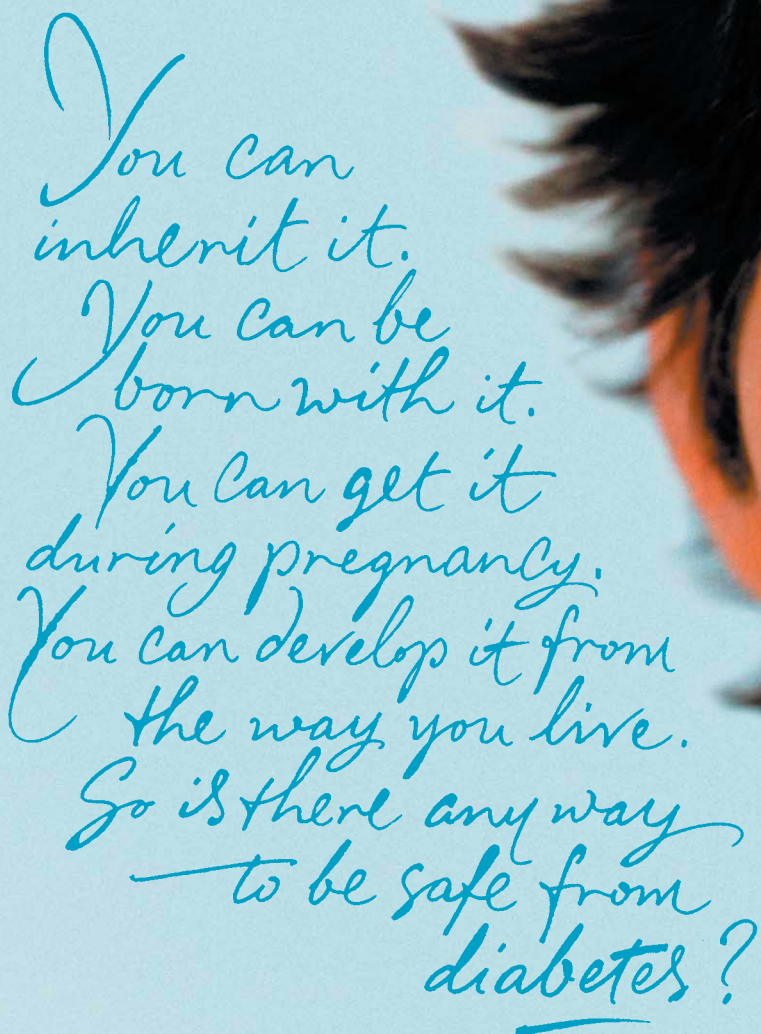 You can
inherit it.
You can be
born with it.
You can get it
during pregnancy.
You can develop it from
the way you live.
So is there any way
to be safe from
diabetes?